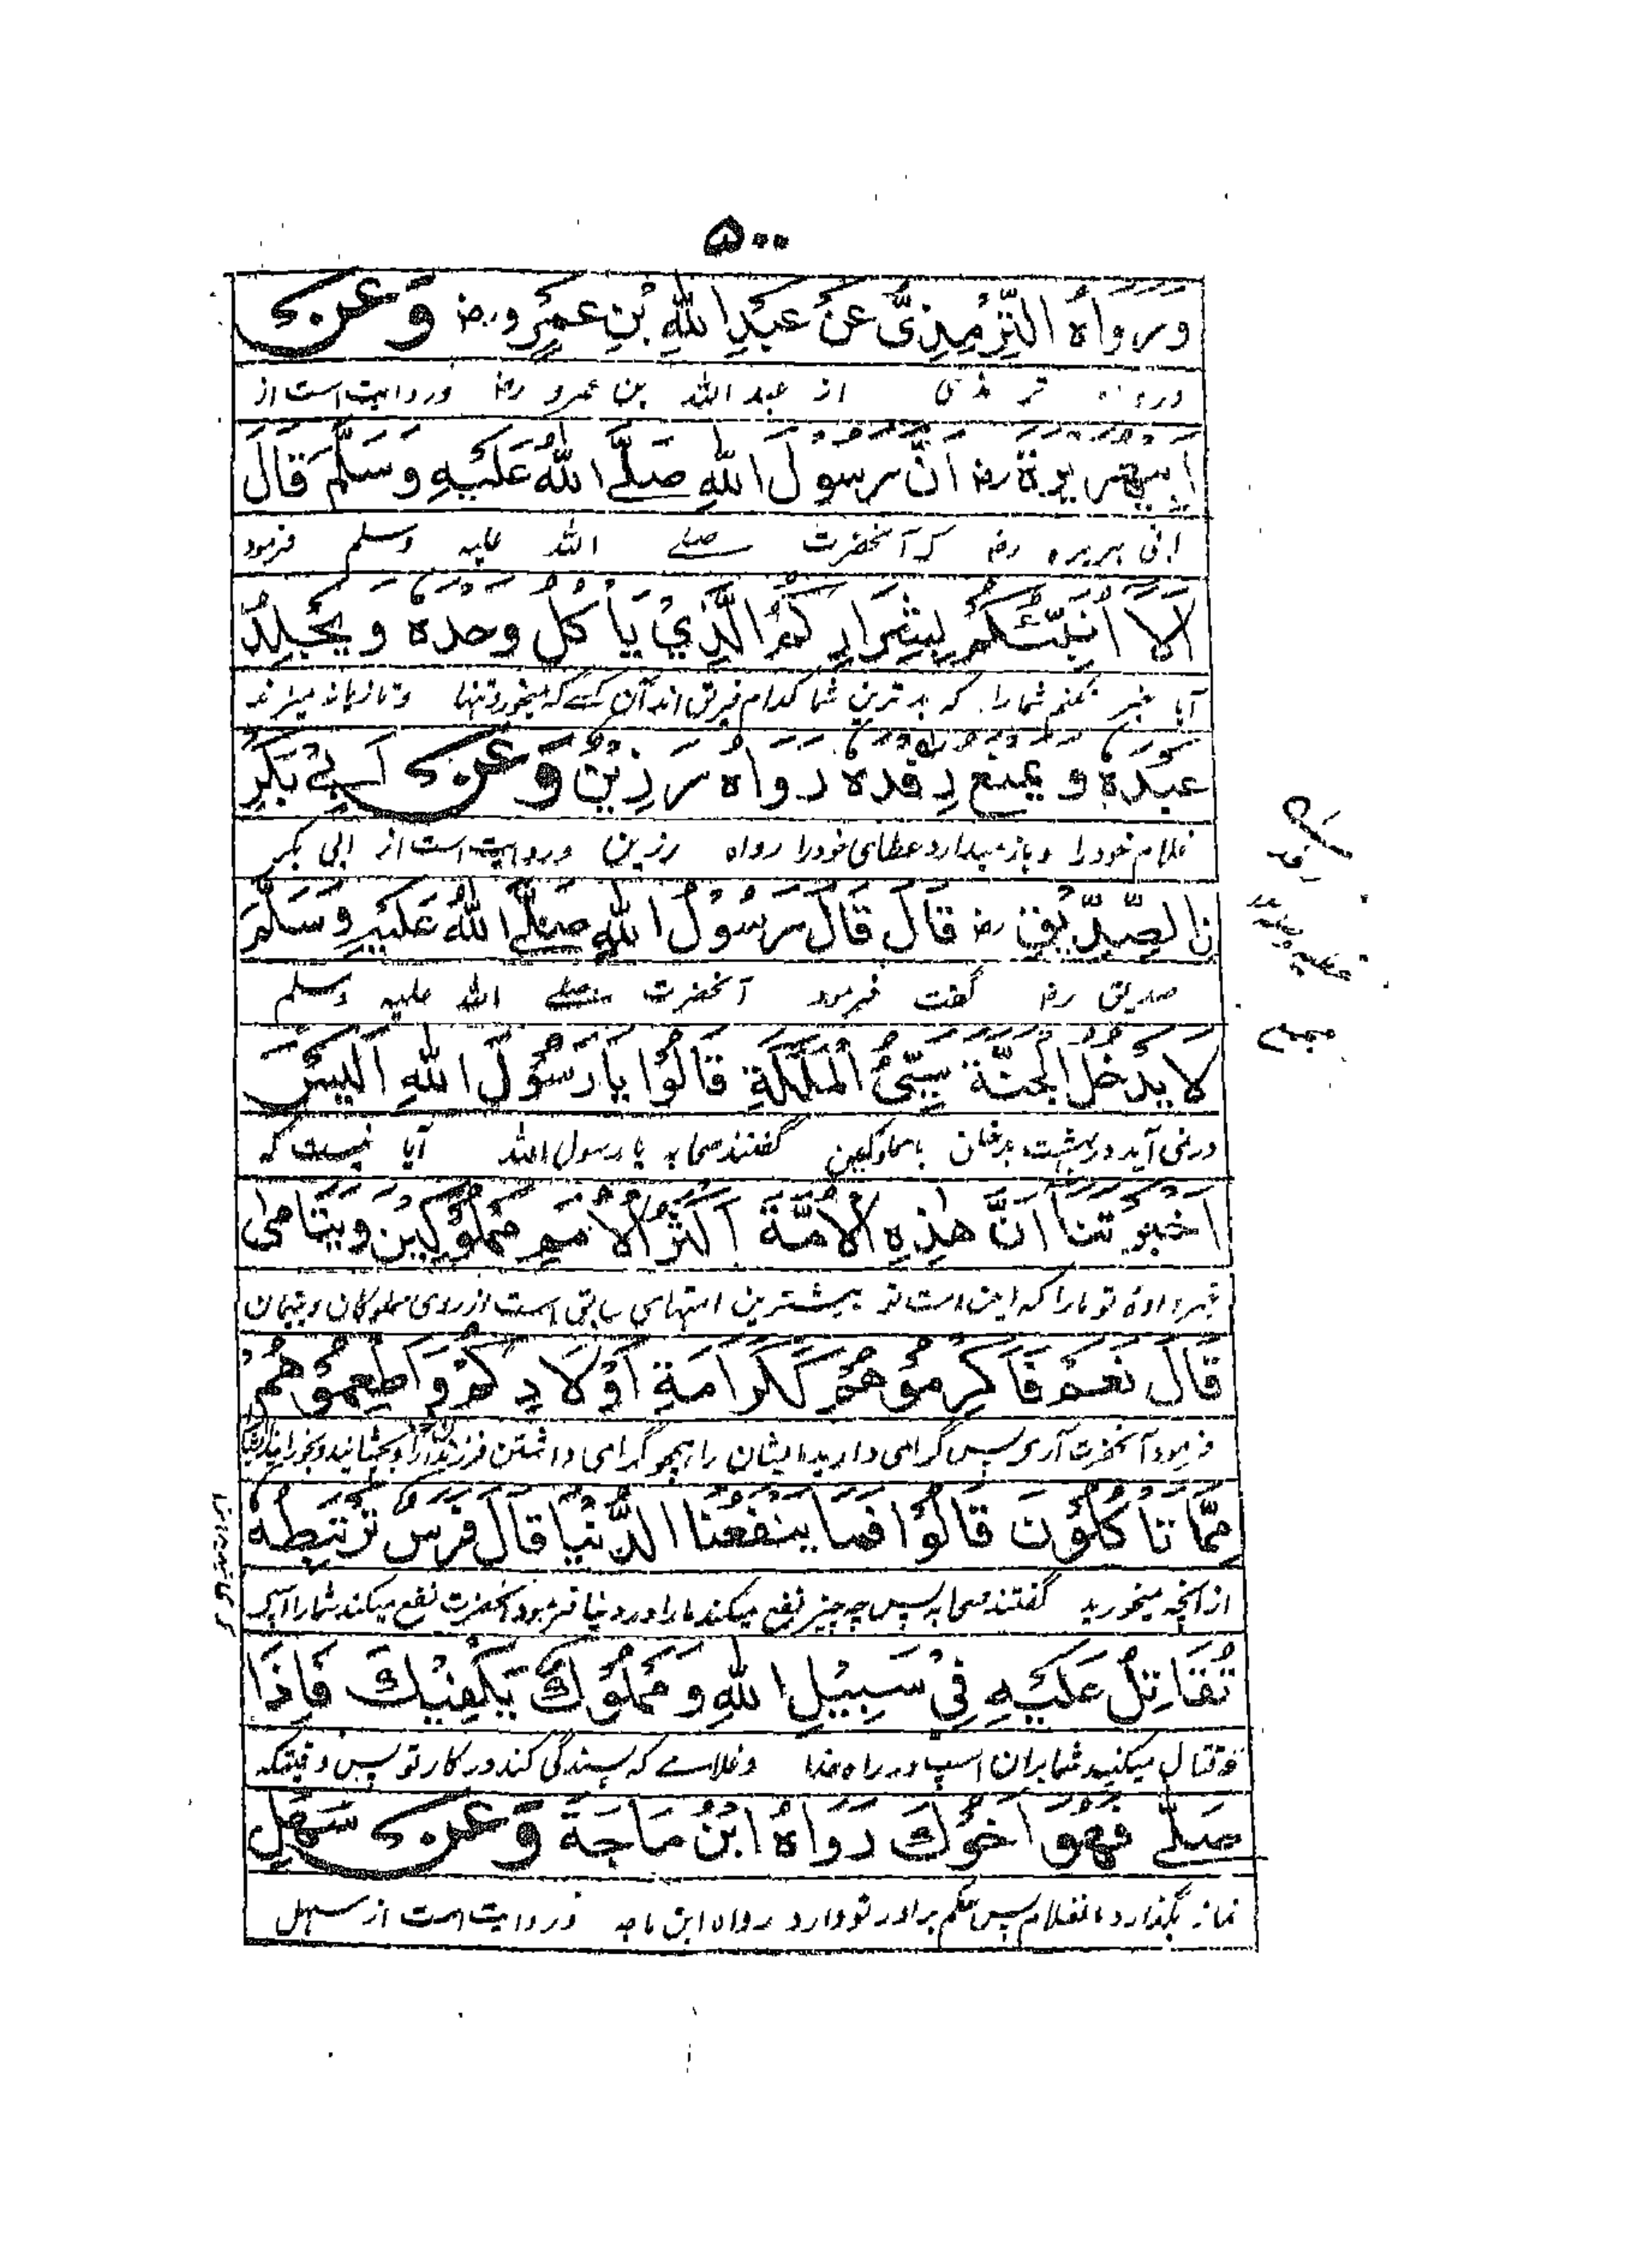 ۵۰۰
وَرَوَاهُ التِّرْمِذِيُّ عَنْ عَبْدِ اللهِ بْنِ عَمْرٍو رض وَعَنْ
ورواه ترمذی از عبد الله بن عمرو رض وروایت است از
اَبِيْهُرَيْرَةَ رض اَنَّ رَسُوْلَ اللهِ صَلَّے اللهُ عَلَيْهِ وَسَلَّمَ قَالَ
ابی ہریره رض کہ آنحضرت صلے الله علیه وسلم فرمود
اَلَا اُنَبِّئُكُمْ بِشِرَارِكُمُ الَّذِيْ يَأْكُلُ وَحْدَهٗ وَيَجْلِدُ
آیا خبر نکنم شمارا که بدترین شما کدام فریق اند آن کسے که میخورد تنها وتازیانه میزند
عَبْدَهٗ وَيَمْنَعُ رِفْدَهٗ رَوَاهُ رَزِيْنٌ وَعَنْ اَبِيْ بَكْرِ
غلام خود را وباز میدارد عطای خود را رواه رزین وروایت است از ابی بکر
نِ الصِّدِّيْقِ رض قَالَ قَالَ رَسُوْلُ اللهِ صَلَّے اللهُ عَلَيْهِ وَسَلَّمَ
صدیق رض گفت فرمود آنحضرت صلے الله علیه وسلم
لَا يَدْخُلُ الْجَنَّةَ سَيِّئُ الْمَلَكَةِ قَالُوْا يَا رَسُوْلَ اللهِ اَلَيْسَ
در نمی آید در بهشت بدخلق با مملوکین گفتند صحابه یا رسول الله آیا نیست که
اَخْبَرْتَنَا اَنَّ هٰذِهِ الْاُمَّةَ اَكْثَرُ الْاُمَمِ مَمْلُوْكِيْنَ وَيَتَامٰى
خبر دادۀ تو مارا که این امت تو بیشترین امتهای سابق است از روی مملوکان ویتیمان
قَالَ نَعَمْ فَاَكْرِمُوْهُمْ كَكَرَامَةِ اَوْلَادِكُمْ وَاَطْعِمُوْهُمْ
فرمود آنحضرت آری پس گرامی دارید ایشان را همچو گرامی داشتن فرزندان
مِمَّا تَأْكُلُوْنَ قَالُوْا فَمَا يَنْفَعُنَا الدُّنْيَا قَالَ فَرَسٌ تَرْتَبِطُهٗ
از انچه میخورید گفتند صحابه پس چه چیز نفع میکند مارا در دنیا فرمود آنحضرت نفع میکند شمارا اسپ
تُقَاتِلُ عَلَيْهِ فِيْ سَبِيْلِ اللهِ وَمَمْلُوْكٌ يَكْفِيْكَ فَاِذَا
قتال میکنید شما بران اسپ در راه خدا وغلامے که بسندگی کند در کار تو پس وقتیکه
صَلّٰے فَهُوَ اَخُوْكَ رَوَاهُ ابْنُ مَاجَةَ وَعَنْ سَهْلِ
نماز بگذارد آنغلام پس حکم برادر تو دارد رواه ابن ماجه وروایت است از سهل